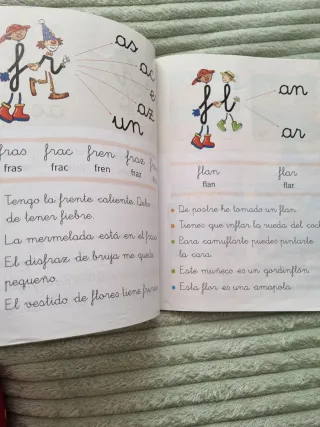 fr
as
ac
e
az
un
fras frac fren fraz
fras frac fren fraz
Tengo la frente caliente. Debo
de tener fiebre.
La mermelada está en el frasco
El disfraz de bruja me queda
pequeño.
El vestido de flores tiene
fl
an
ar
flan flar
flan flar
De postre he tomado un flan.
Tienes que inflar la rueda del coch
Para camuflarte puedes pintarte
la cara.
Este muñeco es un gordinflón.
Esta flor es una amapola.